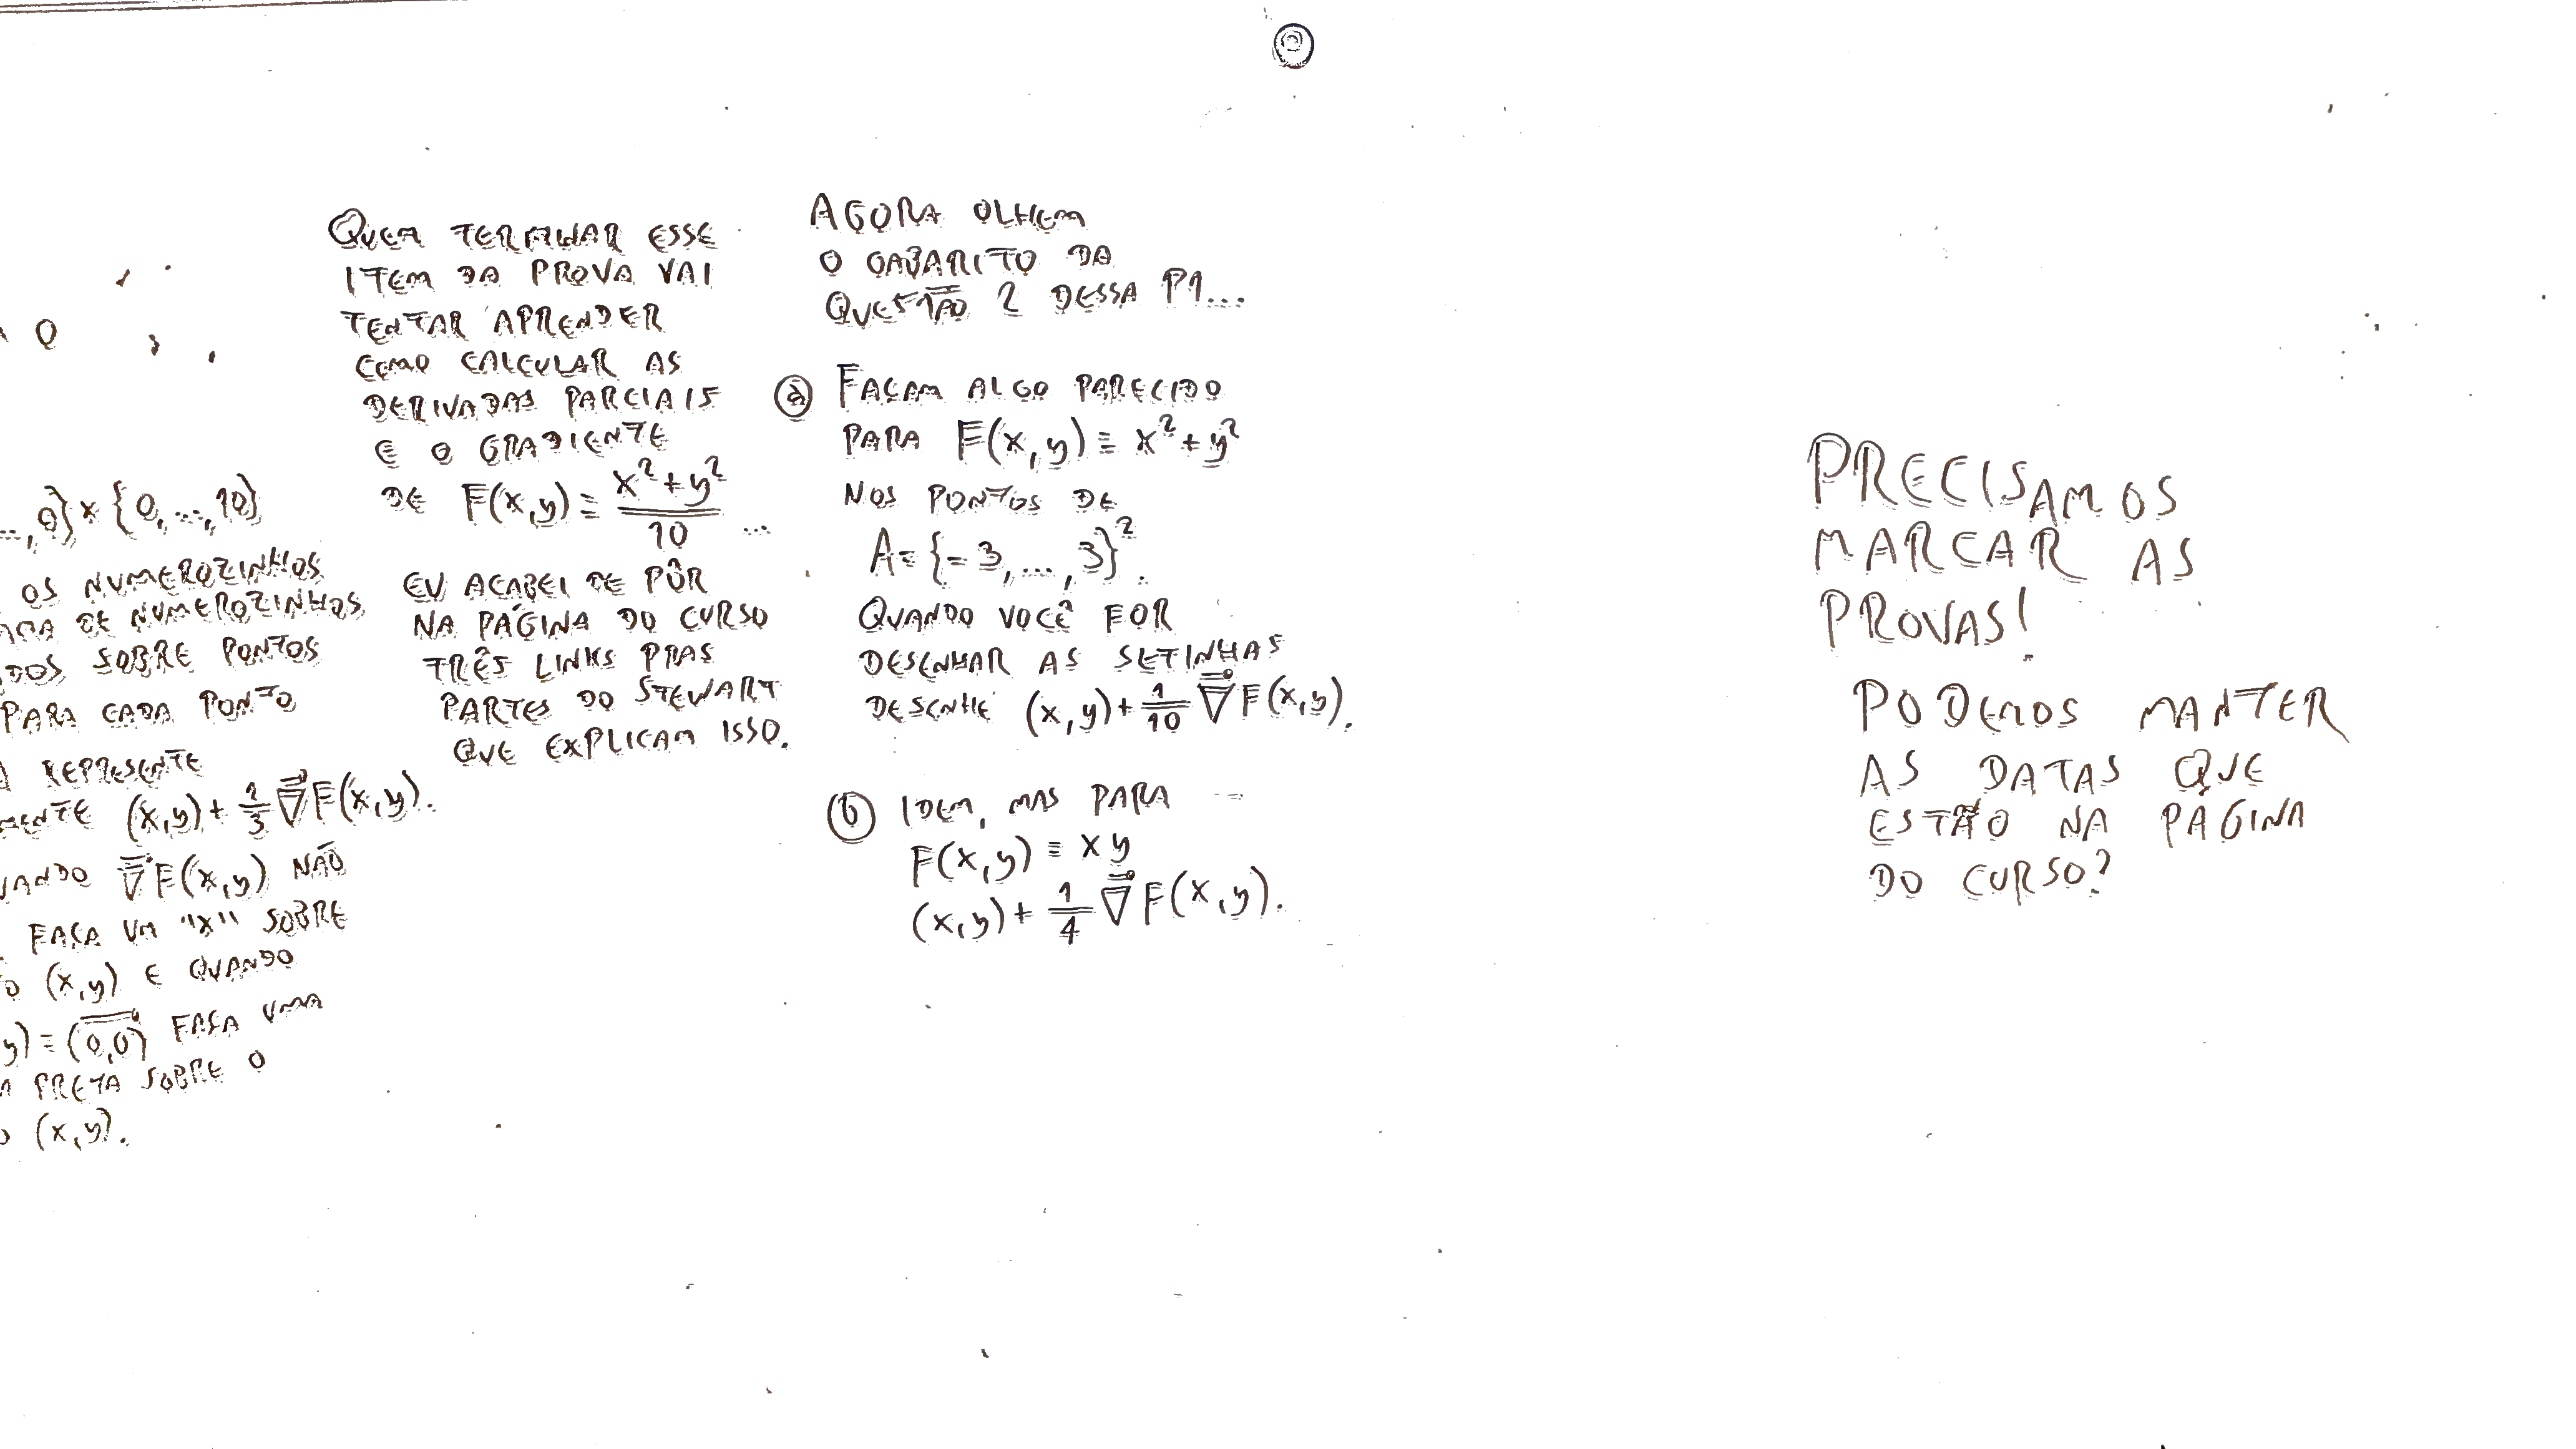 O
..., 0} x {0, ..., 10}
OS NUMEROZINHOS
DE NUMEROZINHOS
SOBRE PONTOS
PARA CADA PONTO
REPRESENTE
(x,y) + 1/3 ∇F(x,y).
∇F(x,y) NÃO
FAÇA UM "X" SOBRE
(x,y) E QUANDO
y) = (0,0) FAÇA UMA
PRETA SOBRE O
(x,y).
QUEM TERMINAR ESSE
ITEM DA PROVA VAI
TENTAR APRENDER
COMO CALCULAR AS
DERIVADAS PARCIAIS
E O GRADIENTE
DE F(x,y) = x²+y²/10 ...
EU ACABEI DE PÔR
NA PÁGINA DO CURSO
TRÊS LINKS PRAS
PARTES DO STEWART
QUE EXPLICAM ISSO.
AGORA OLHEM
O GABARITO DA
QUESTÃO 2 DESSA P1...
(a) FAÇAM ALGO PARECIDO
PARA F(x,y) = x²+y²
NOS PONTOS DE
A = {-3, ..., 3}².
QUANDO VOCÊ FOR
DESENHAR AS SETINHAS
DESENHE (x,y) + 1/10 ∇F(x,y).
(b) IDEM, MAS PARA
F(x,y) = xy
(x,y) + 1/4 ∇F(x,y).
PRECISAMOS
MARCAR AS
PROVAS!
PODEMOS MANTER
AS DATAS QUE
ESTÃO NA PÁGINA
DO CURSO?